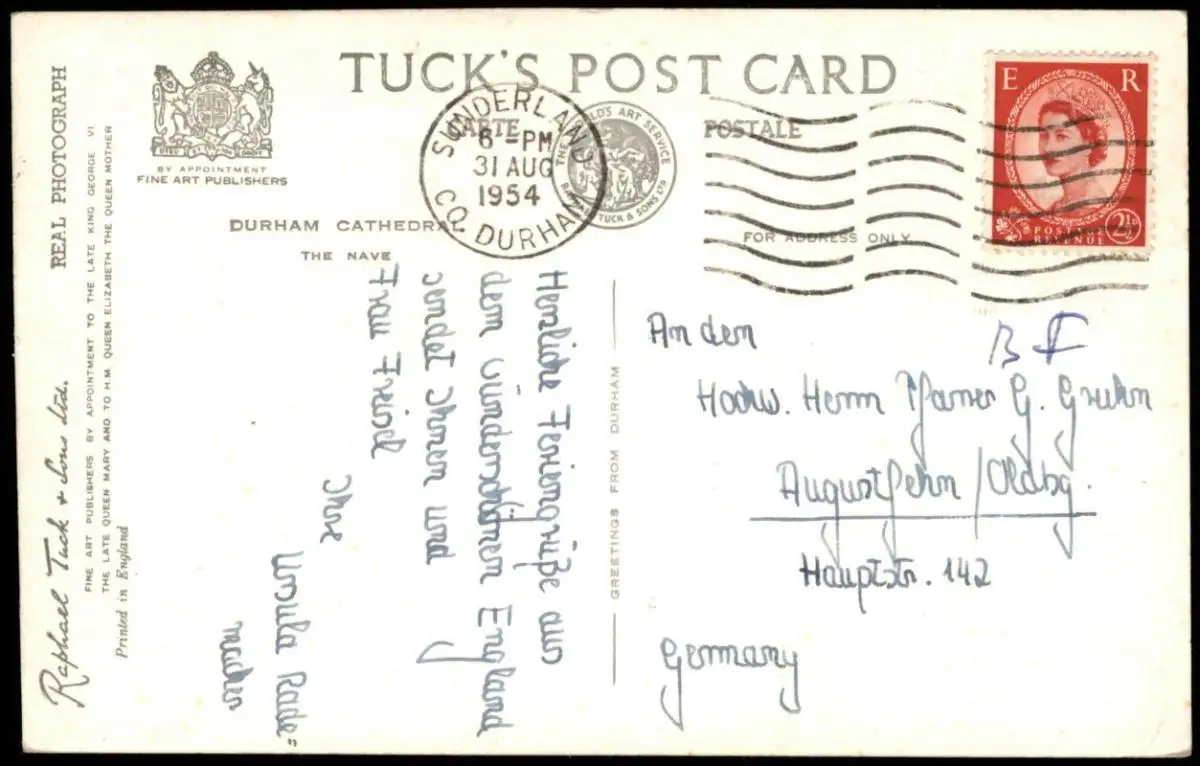 TUCK'S POST CARD
CARTE POSTALE
BY APPOINTMENT
FINE ART PUBLISHERS
DURHAM CATHEDRAL
THE NAVE
SUNDERLAND
6-PM
31 AUG
1954
CO. DURHAM
THE WORLD'S ART SERVICE
RAPHAEL TUCK & SONS LTD
E R
POSTAGE
REVENUE
2½D
FOR ADDRESS ONLY
REAL PHOTOGRAPH
Raphael Tuck & Sons Ltd.
FINE ART PUBLISHERS BY APPOINTMENT TO THE LATE KING GEORGE VI
THE LATE QUEEN MARY AND TO H.M. QUEEN ELIZABETH THE QUEEN MOTHER
Printed in England
GREETINGS FROM DURHAM
Herzliche Feriengrüße aus
dem wunderschönen England
sendet Ihnen und
Frau
Ihre
Ursula Rade=
macher
An den
Hochw. Herrn Pfarrer G. Gruhn
Augustfehn/Oldbg.
Hauptstr. 142
Germany